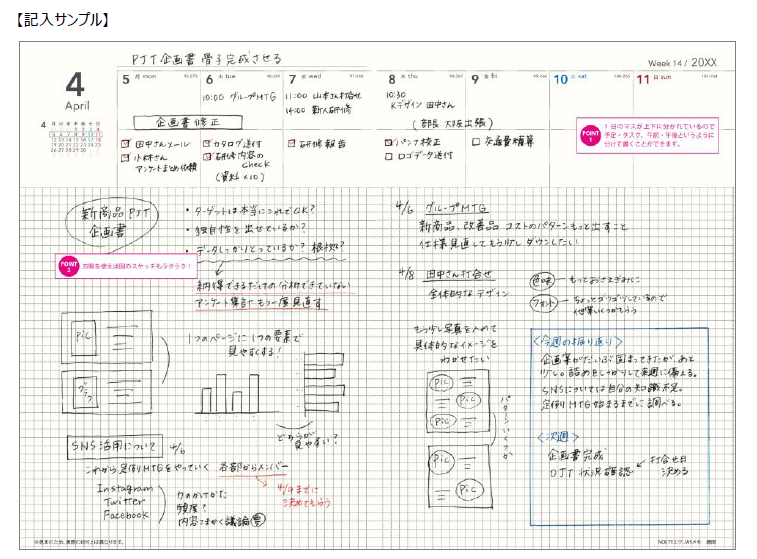 【記入サンプル】
PJT企画書 骨子完成させる
Week 14 / 20XX
4
April
5 月 mon
6 火 tue
7 水 wed
8 木 thu
9 金 fri
10 土 sat
11 日 sun
10:00 グループMTG
11:00 山本さん打合せ
14:00 新人研修
10:30
Kデザイン 田中さん
(部長 大阪出張)
企画書修正
田中さんメール
小林さん
アンケートまとめ依頼
カタログ送付
研修内容の
check
(資料×10)
研修報告
パンフ校正
ロゴデータ送付
交通費精算
POINT 1
1日のマスが上下に分かれているので
予定・タスク、午前・午後というように
分けて書くことができます。
新商品PJT
企画書
・ターゲットは本当にこれでOK?
・独自性を出せているか?
・データしっかりとっているか? 根拠は?
POINT 2
方眼を使えば図のスケッチもラクラク!
納得できるだけの分析できていない
アンケート集計もう一度見直す
Pic
グラフ
1つのページに1つの要素で
見やすくする!
どちらが
見やすい?
SNS活用について 4/6
これから定例MTGをやっていく 各部からメンバー
4/9までに
決めてもらう
Instagram
Twitter
Facebook
頻度?
内容こまかく議論 要
4/6 グループMTG
新商品、改善品 コストのパターンもっと出すこと
仕様見直してもう少しダウンしたい
4/8 田中さん打合せ
全体的なデザイン
色味 もっとおさえぎみに
フォント ちょっとゴツゴツしているので
他案いくつかもらう
もう少し写真を入れて
具体的なイメージを
わかせたい
Pic
Pic
Pic
Pic
Pic
パターンいくつか
<今週の振り返り>
企画案がだいぶ固まってきたが、あと
少し。詰めをしっかりして来週に備える。
SNSについては自分の知識不足。
定例MTG始まるまでに調べる。
<次週>
企画書完成
OJT 状況確認
打合せ日
決める
※見本のため、実際の日付とは異なります。